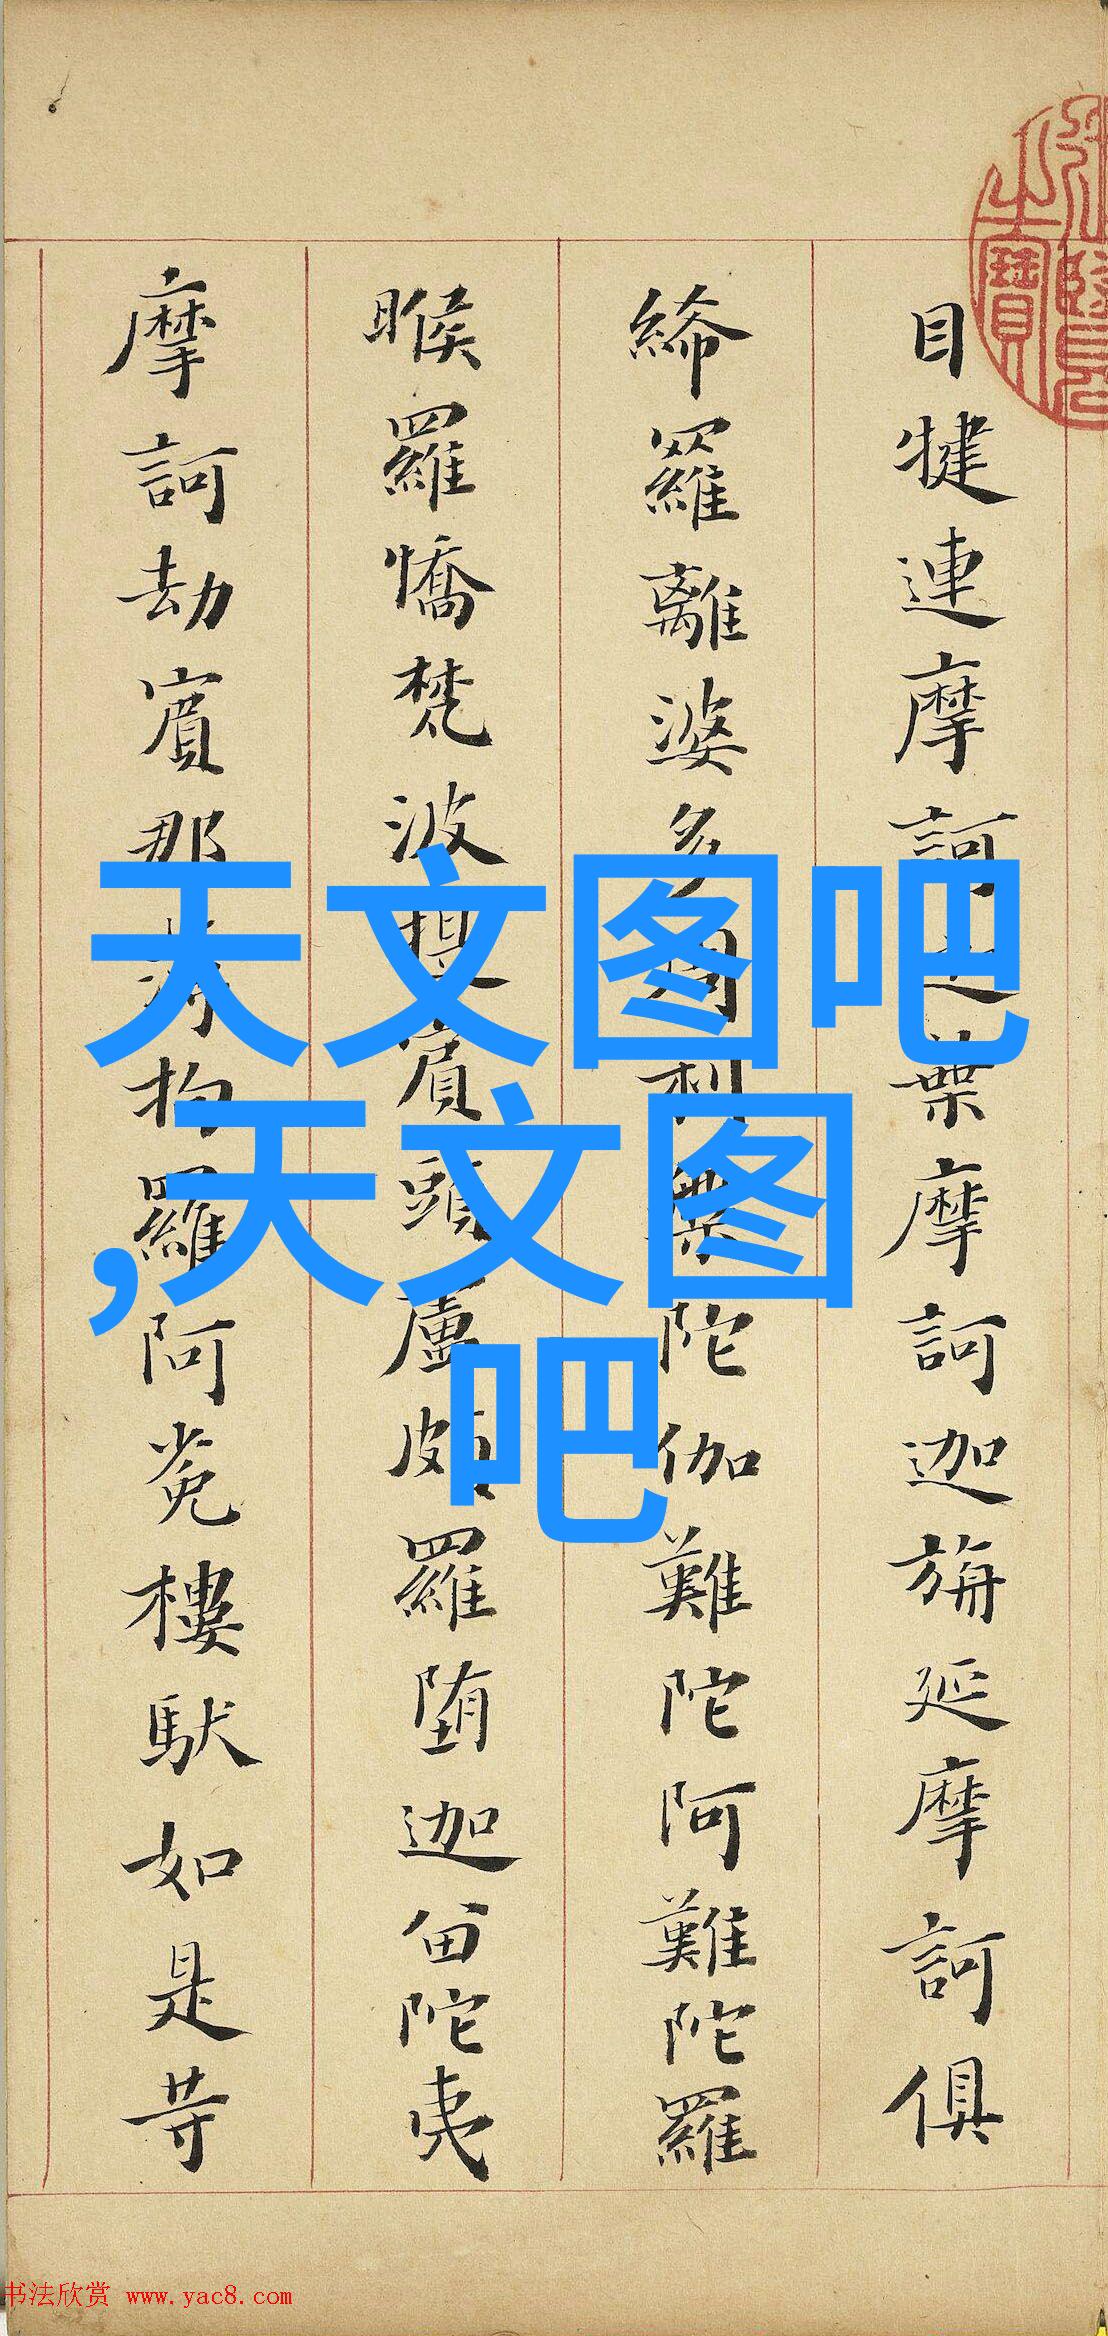 目犍連摩訶葉摩訶迦旃延摩訶俱
絺羅離婆多周利陀伽難陀阿難陀羅
睺羅憍梵波提賓頭盧頗羅堕迦留陀夷
摩訶劫賓那拘羅阿㝹樓馱如是等
天文图吧
,天文图
吧
之寶
书法欣赏 www.yac8.com